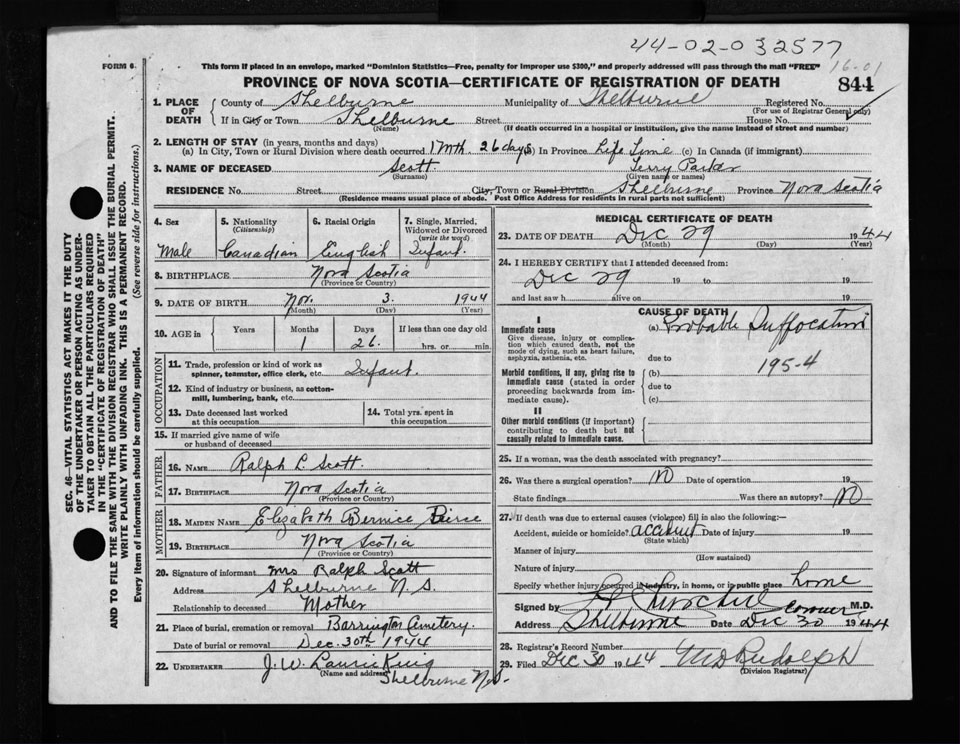 44-02-032577
16-01
FORM 6.
This form if placed in an envelope, marked "Dominion Statistics—Free, penalty for improper use $300," and properly addressed will pass through the mail "FREE"
PROVINCE OF NOVA SCOTIA—CERTIFICATE OF REGISTRATION OF DEATH
844
1. PLACE OF DEATH
County of Shelburne Municipality of Shelburne Registered No.
(For use of Registrar General only)
If in City or Town Shelburne Street House No.
(Name) (If death occurred in a hospital or institution, give the name instead of street and number)
2. LENGTH OF STAY (in years, months and days)
(a) In City, Town or Rural Division where death occurred 1 Mth. 26 days (b) In Province Life Time (c) In Canada (if immigrant)
3. NAME OF DECEASED Scott Terry Parker
(Surname) (Given name or names)
RESIDENCE No. Street City, Town or Rural Division Shelburne Province Nova Scotia
(Residence means usual place of abode. Post Office Address for residents in rural parts not sufficient)
SEC. 46—VITAL STATISTICS ACT MAKES IT THE DUTY
OF THE UNDERTAKER OR PERSON ACTING AS UNDER-
TAKER TO OBTAIN ALL THE PARTICULARS REQUIRED
IN THE "CERTIFICATE OF REGISTRATION OF DEATH"
AND TO FILE THE SAME WITH THE DIVISION REGISTRAR WHO SHALL ISSUE THE BURIAL PERMIT.
WRITE PLAINLY WITH UNFADING INK. THIS IS A PERMANENT RECORD.
Every item of information should be carefully supplied. (See reverse side for instructions.)
4. Sex
Male
5. Nationality
(Citizenship)
Canadian
6. Racial Origin
English
7. Single, Married,
Widowed or Divorced
(write the word)
Infant.
8. BIRTHPLACE Nova Scotia
(Province or Country)
9. DATE OF BIRTH Nov. 3. 1944
(Month) (Day) (Year)
10. AGE in
Years Months Days If less than one day old
1 26. hrs. or min.
OCCUPATION
11. Trade, profession or kind of work as
spinner, teamster, office clerk, etc. Infant.
12. Kind of industry or business, as cotton-
mill, lumbering, bank, etc.
13. Date deceased last worked
at this occupation
14. Total yrs. spent in
this occupation
15. If married give name of wife
or husband of deceased
FATHER
16. NAME Ralph L. Scott.
17. BIRTHPLACE Nova Scotia
(Province or Country)
MOTHER
18. MAIDEN NAME Elizabeth Bernice Peirce
19. BIRTHPLACE Nova Scotia
(Province or Country)
20. Signature of informant Mrs Ralph Scott
Address Shelburne N.S.
Relationship to deceased Mother
21. Place of burial, cremation or removal Barrington Cemetery.
Date of burial or removal Dec. 30th 1944
22. UNDERTAKER J. W. Laurie King
(Name and address) Shelburne N.S.
MEDICAL CERTIFICATE OF DEATH
23. DATE OF DEATH Dec 29 1944
(Month) (Day) (Year)
24. I HEREBY CERTIFY that I attended deceased from:
Dec 29 19 to 19
and last saw h alive on 19
CAUSE OF DEATH
I
Immediate cause
Give disease, injury or complica-
tion which caused death, not the
mode of dying, such as heart failure,
asphyxia, asthenia, etc.
(a) Probable Suffocation
due to
195-4
Morbid conditions, if any, giving rise to
immediate cause (stated in order
proceeding backwards from im-
mediate cause).
(b)
due to
(c)
II
Other morbid conditions (if important)
contributing to death but not
causally related to immediate cause.
25. If a woman, was the death associated with pregnancy?
26. Was there a surgical operation? No Date of operation 19
State findings Was there an autopsy? No
27. If death was due to external causes (violence) fill in also the following:—
Accident, suicide or homicide? accident Date of injury 19
(State which)
Manner of injury
(How sustained)
Nature of injury
Specify whether injury occurred in industry, in home, or in public place home
Signed by Coroner M.D.
Address Shelburne Date Dec 30 1944
28. Registrar's Record Number
29. Filed Dec 30 1944 M D Rudolph
(Division Registrar)